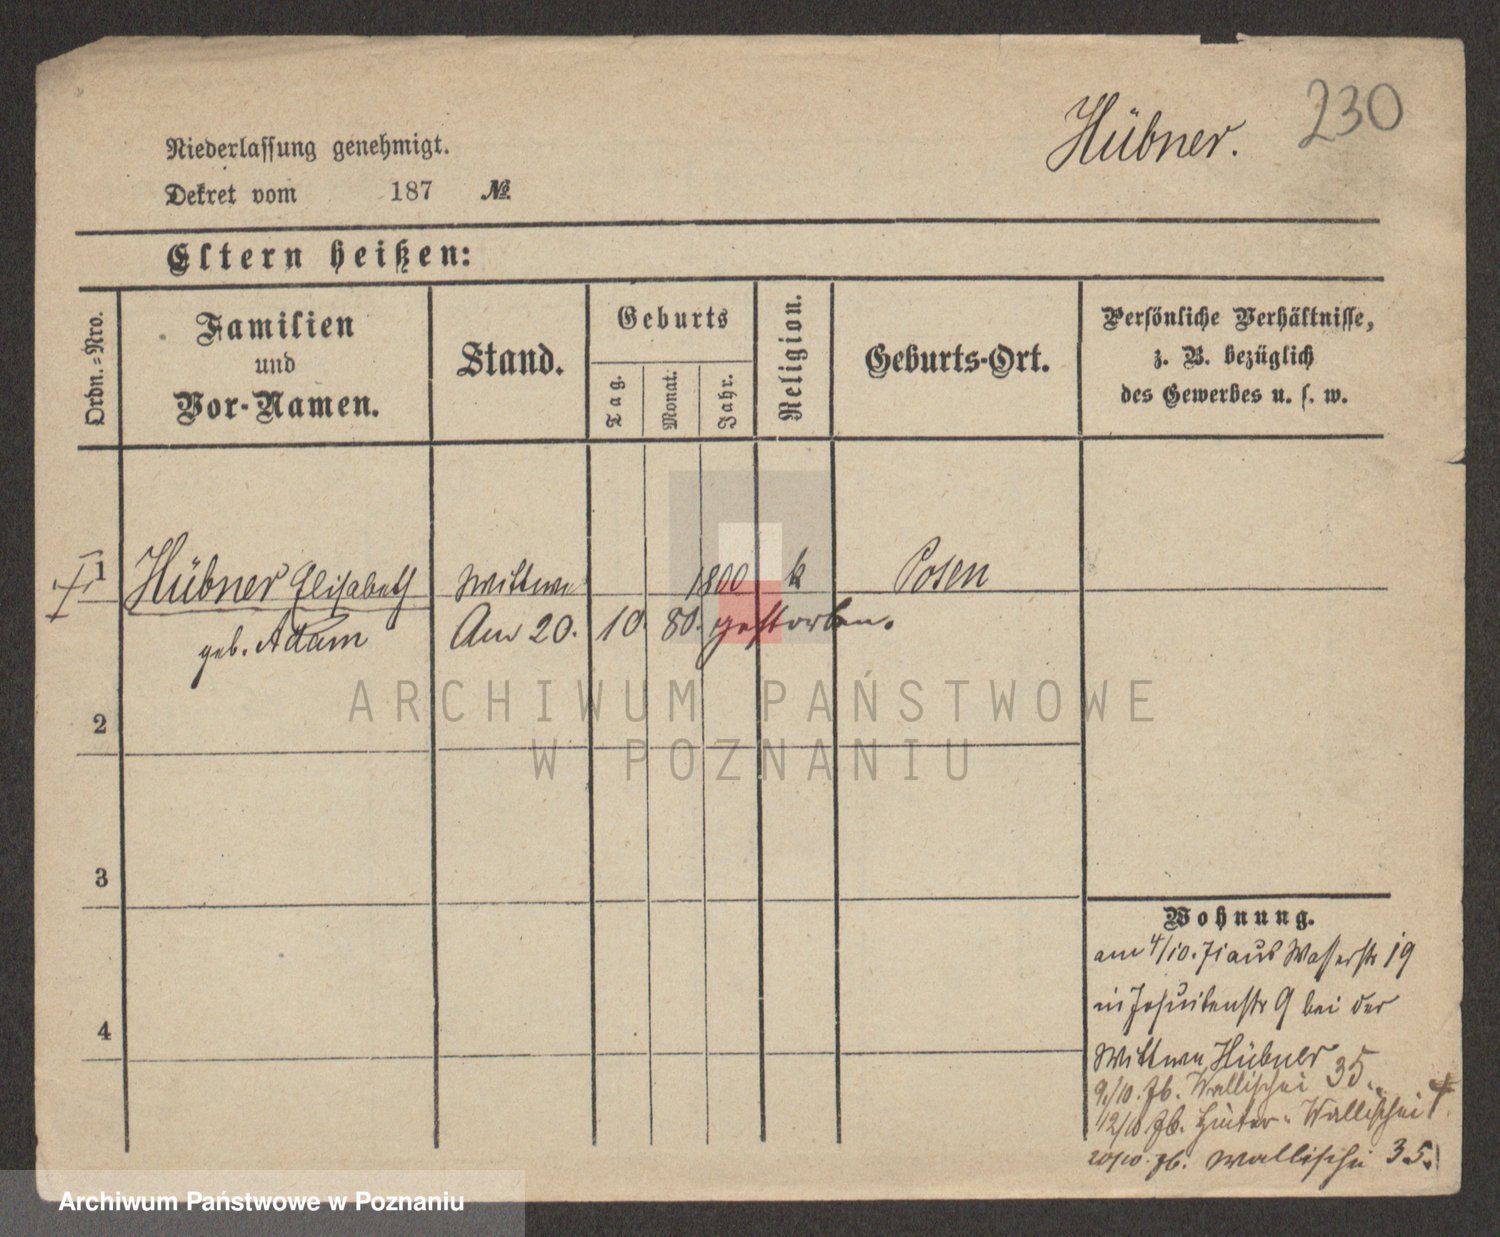 230
Hübner.
Niederlassung genehmigt.
Dekret vom 187 №
Eltern heißen:
Ordn.-Nro.
Familien
und
Vor-Namen.
Stand.
Geburts
Tag.
Monat.
Jahr.
Religion.
Geburts-Ort.
Persönliche Verhältnisse,
z. B. bezüglich
des Gewerbes u. s. w.
1 Hübner Elisabeth Wittwe 1800 k Posen
geb. Adam Am 20. 10. 80. gestorben.
ARCHIWUM PAŃSTWOWE
W POZNANIU
2
3
4
Wohnung.
am 4/10. 71 aus Wasserstr 19
in Jesuitenstr 9 bei der
Wittwe Hübner
9/10. Wallischei 35.
12/10 Hinter-Wallischei
Wallischei 35.
Archiwum Państwowe w Poznaniu